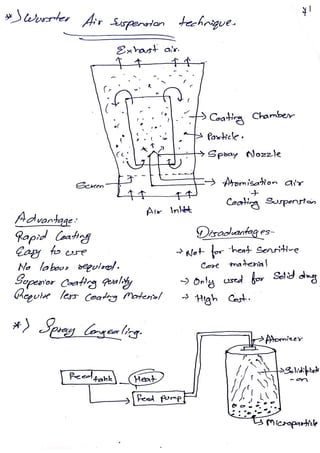 *) Wurster Air Suspension technique.
71
Exhaust air.
Coating Chamber
Particle.
Spray Nozzle
Screen
Atomisation air
+
Coating Suspension
Air Inlet
Advantage:
Rapid Coating
Easy to use
No labour required.
Superior Coating quality
Require less Coating Material
Disadvantages-
→ Not for heat Sensitive
Core material
→ Only used for Solid drug
→ High Cost.
*) Spray Congealing.
Feed tank
Heat
Feed Pump
Atomizer
Solidificati
-on
Microparticle